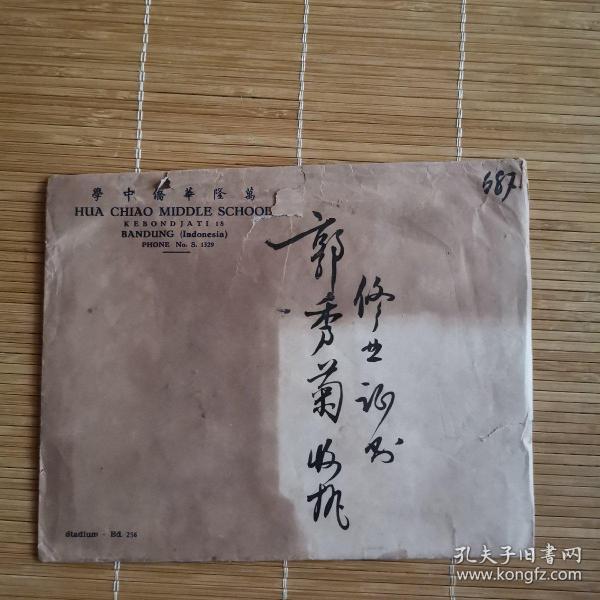 學中僑華隆萬
HUA CHIAO MIDDLE SCHOOL
KEBONDJATI 18
BANDUNG (Indonesia)
PHONE No. S. 1329
687
修业证书
郭秀菊收执
Stadium - Bd. 256
孔夫子旧书网
www.kongfz.com